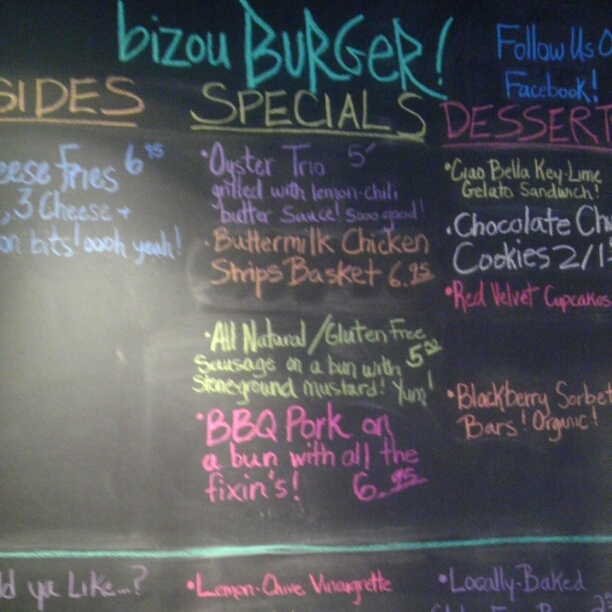 bizou BURGER!
Follow Us
Facebook!
SIDES
eese Fries 6.95
3 Cheese +
on bits! oooh yeah!
SPECIALS
• Oyster Trio 5
grilled with lemon-chili
butter sauce! sooo good!
• Buttermilk Chicken
Strips Basket 6.95
• All Natural/Gluten Free
Sausage on a bun with 5
Stoneground mustard! Yum!
• BBQ Pork on
a bun with all the
fixin's! 6.95
DESSERT
• Ciao Bella Key-Lime
Gelato Sandwich!
• Chocolate Ch
Cookies 2/1
• Red Velvet Cupcakes
• Blackberry Sorbet
Bars! Organic!
ld ya Like...?
• Lemon-Chive Vinaigrette
• Locally-Baked